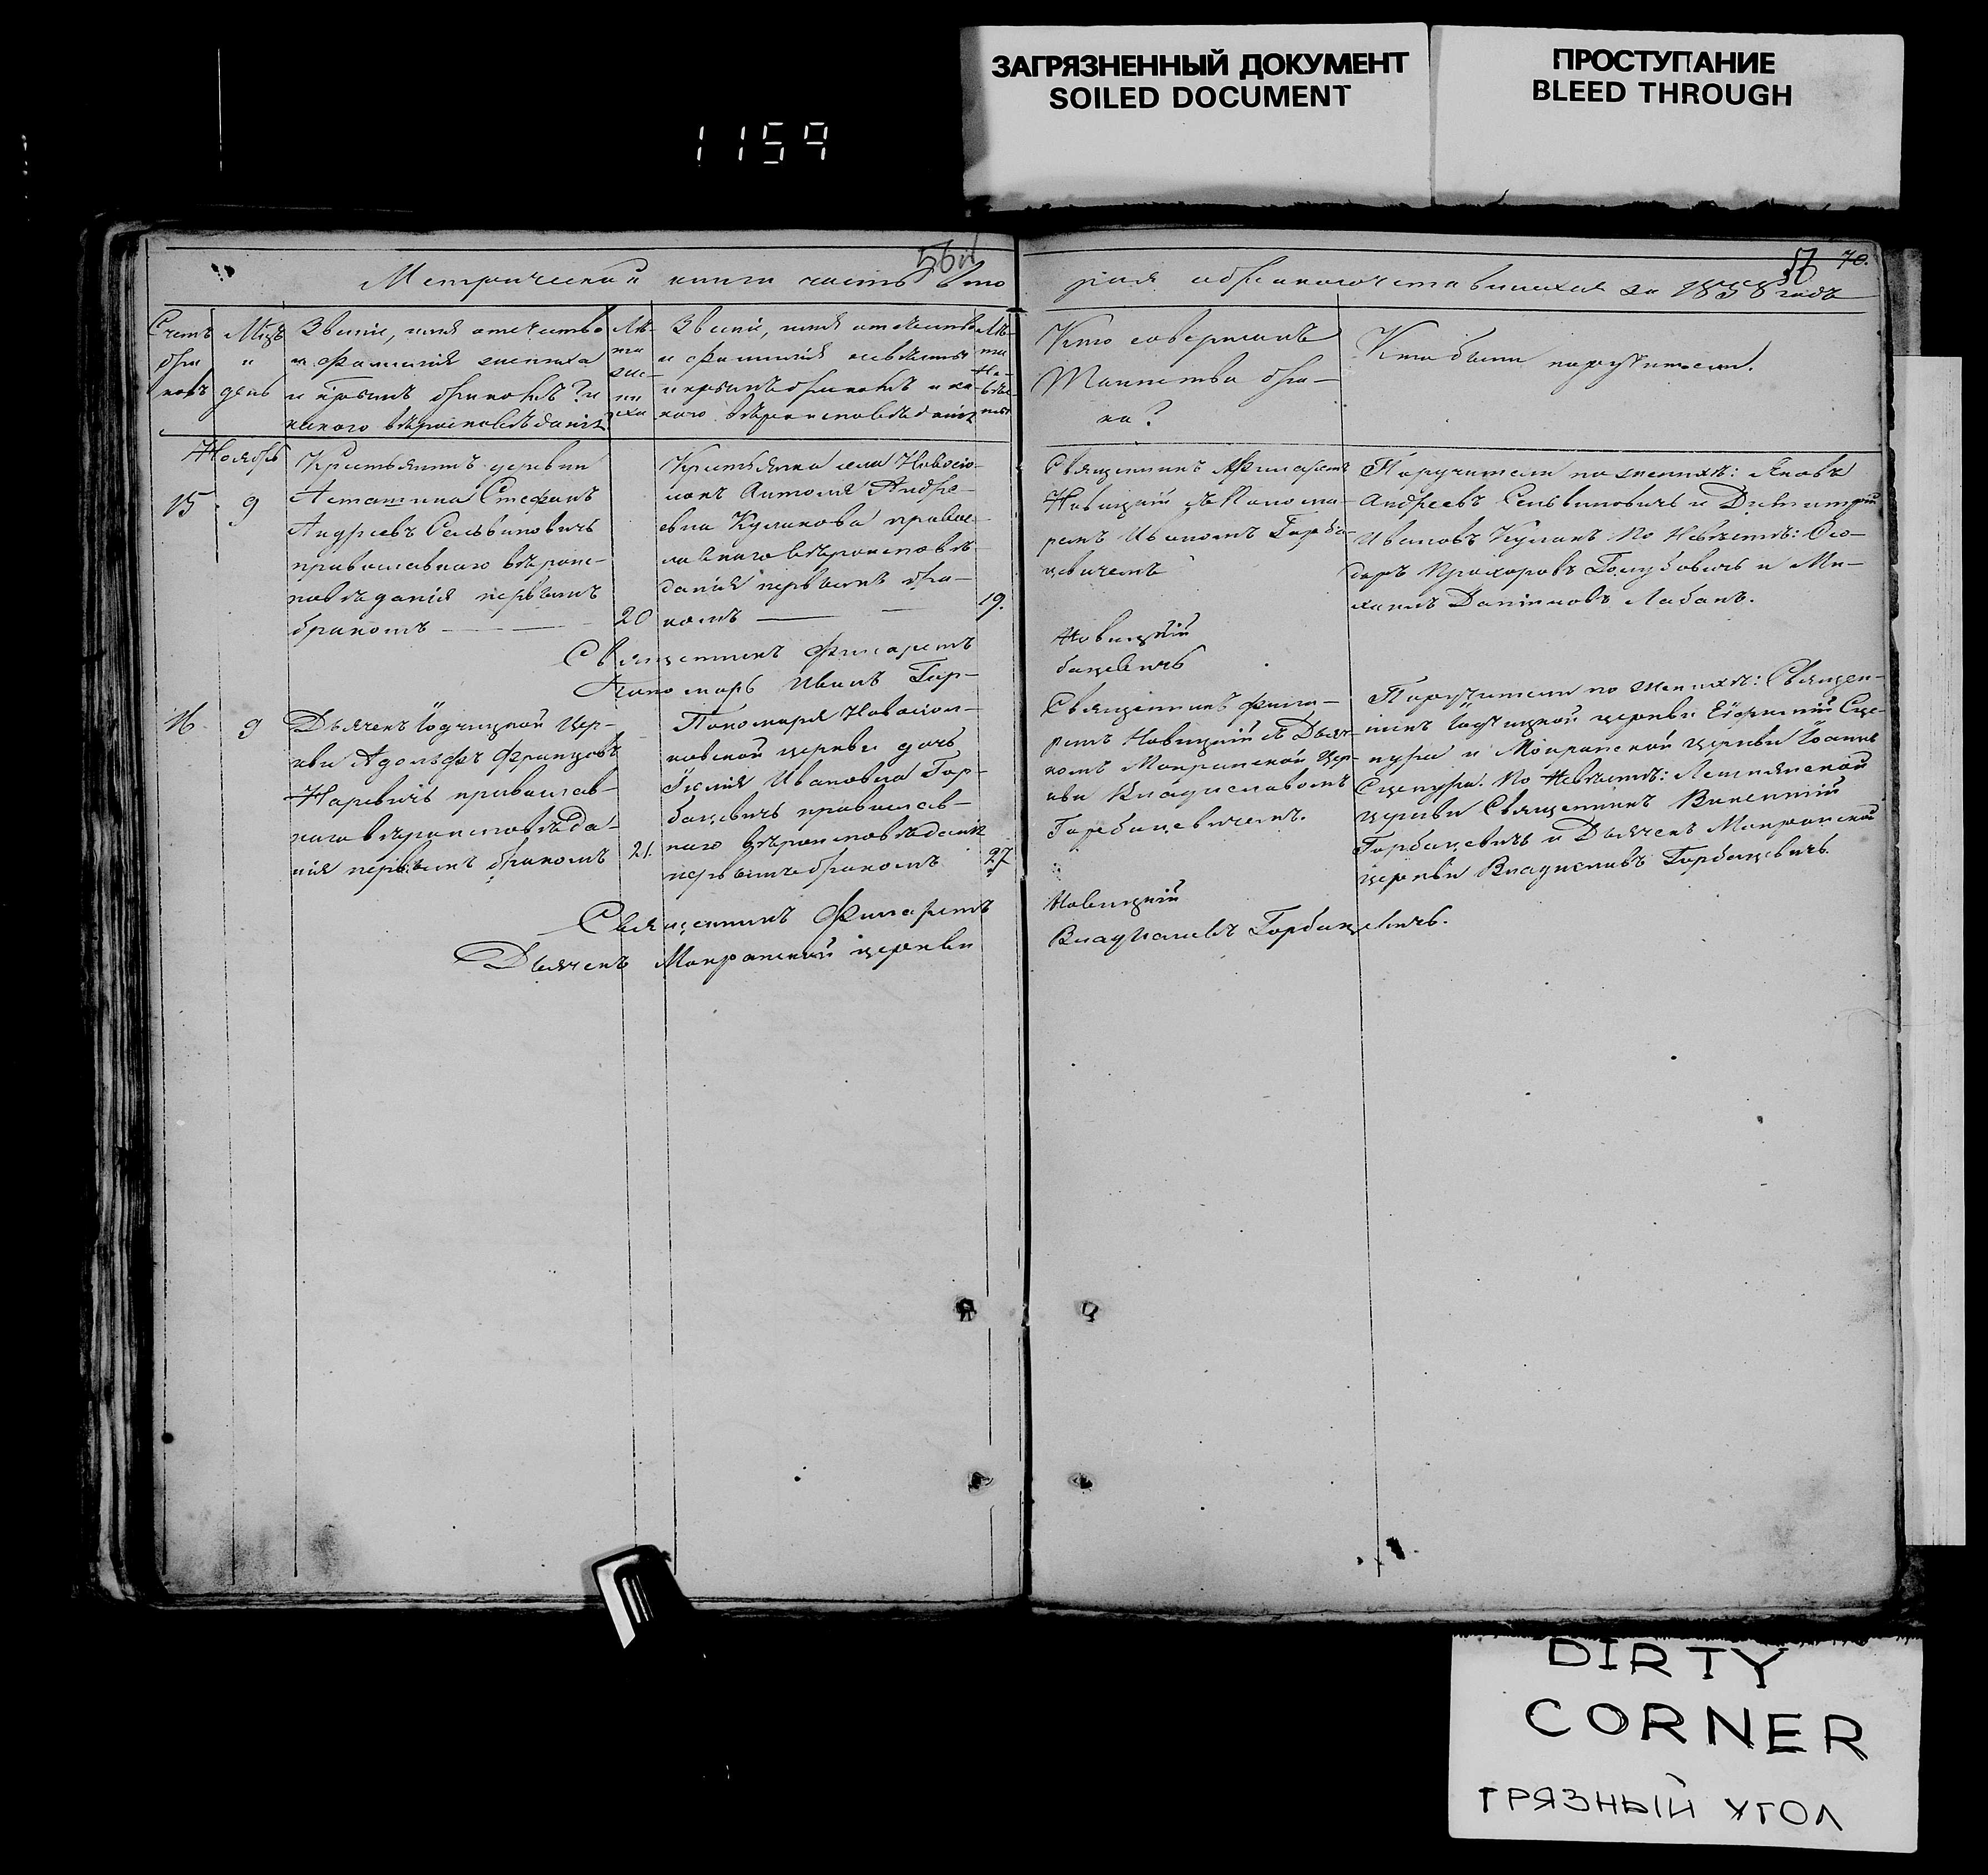 ЗАГРЯЗНЕННЫЙ ДОКУМЕНТ
SOILED DOCUMENT
ПРОСТУПАНИЕ
BLEED THROUGH
1159
57 70.
Метрической книги часть вто
рая о бракосочетавшихся за 1858 годъ
Счетъ
бра
ковъ
Мцъ
и
день
Званіе, имя отечество
и фамилія жениха
и которымъ бракомъ? и
какого вѣроисповѣданія
Лѣ-
та
же-
ни
ха
Званіе, имя отечество
и фамилія невѣсты
и которымъ бракомъ и ка-
кого вѣроисповѣданія
Лѣ-
та
Не-
вѣс-
ты
Кто совершалъ
Таинство бра-
ка?
Кто были поручители.
Ноябрь
15 9
Крестьянинъ деревни
Асташина Стефанъ
Андреевъ Сельвиновичь
православнаго вѣроис-
повѣданія первымъ
бракомъ
20
Крестьянка села Новосіо-
локъ Антоля Андре-
евна Куликова правос-
лавнаго вѣроисповѣ-
данія первымъ бра-
комъ
19.
Священникъ Филаретъ
Новицкій съ Понома-
ремъ Иваномъ Горба-
цевичемъ
Поручители по женихѣ: Яковъ
Андреевъ Сельвиновичь и Димитрій
Ивановъ Куликъ По Невѣстѣ: Ѳео-
доръ Прохоровъ Голубовичь и Ми-
хаилъ Даніиловъ Лабанъ.
Священникъ Филаретъ Новицкій
Пономарь Иванъ Гор-бацевичь
16 9
Дьячекъ Іодчицкой Цер-
кви Адольфъ Францовъ
Наревичь православ-
наго вѣроисповѣда-
нія первымъ бракомъ
21.
Пономаря Новосіол-
ковской церкви дочь
Іюлія Ивановна Гор-
бацевичь православ-
наго вѣроисповѣданія
первымъ бракомъ
27
Священникъ Фила-
ретъ Новицкій съ Дьяч-
комъ Мокранской Цер-
кви Владиславомъ
Горбацевичемъ.
Поручители по женихѣ: Священ-
никъ Іодчицкой церкви Ефимій Сце-
пура и Мокранской церкви Іоаннъ
Сцепура. По Невѣстѣ: Лешнянской
церкви Священникъ Викентій
Горбацевичь и Дьячекъ Мокранской
церкви Владиславъ Горбацевичь.
Священникъ Филаретъ Новицкій
Дьячекъ Мокранской церкви Владиславъ Горбацевичь.
DIRTY
CORNER
ГРЯЗНЫЙ УГОЛ